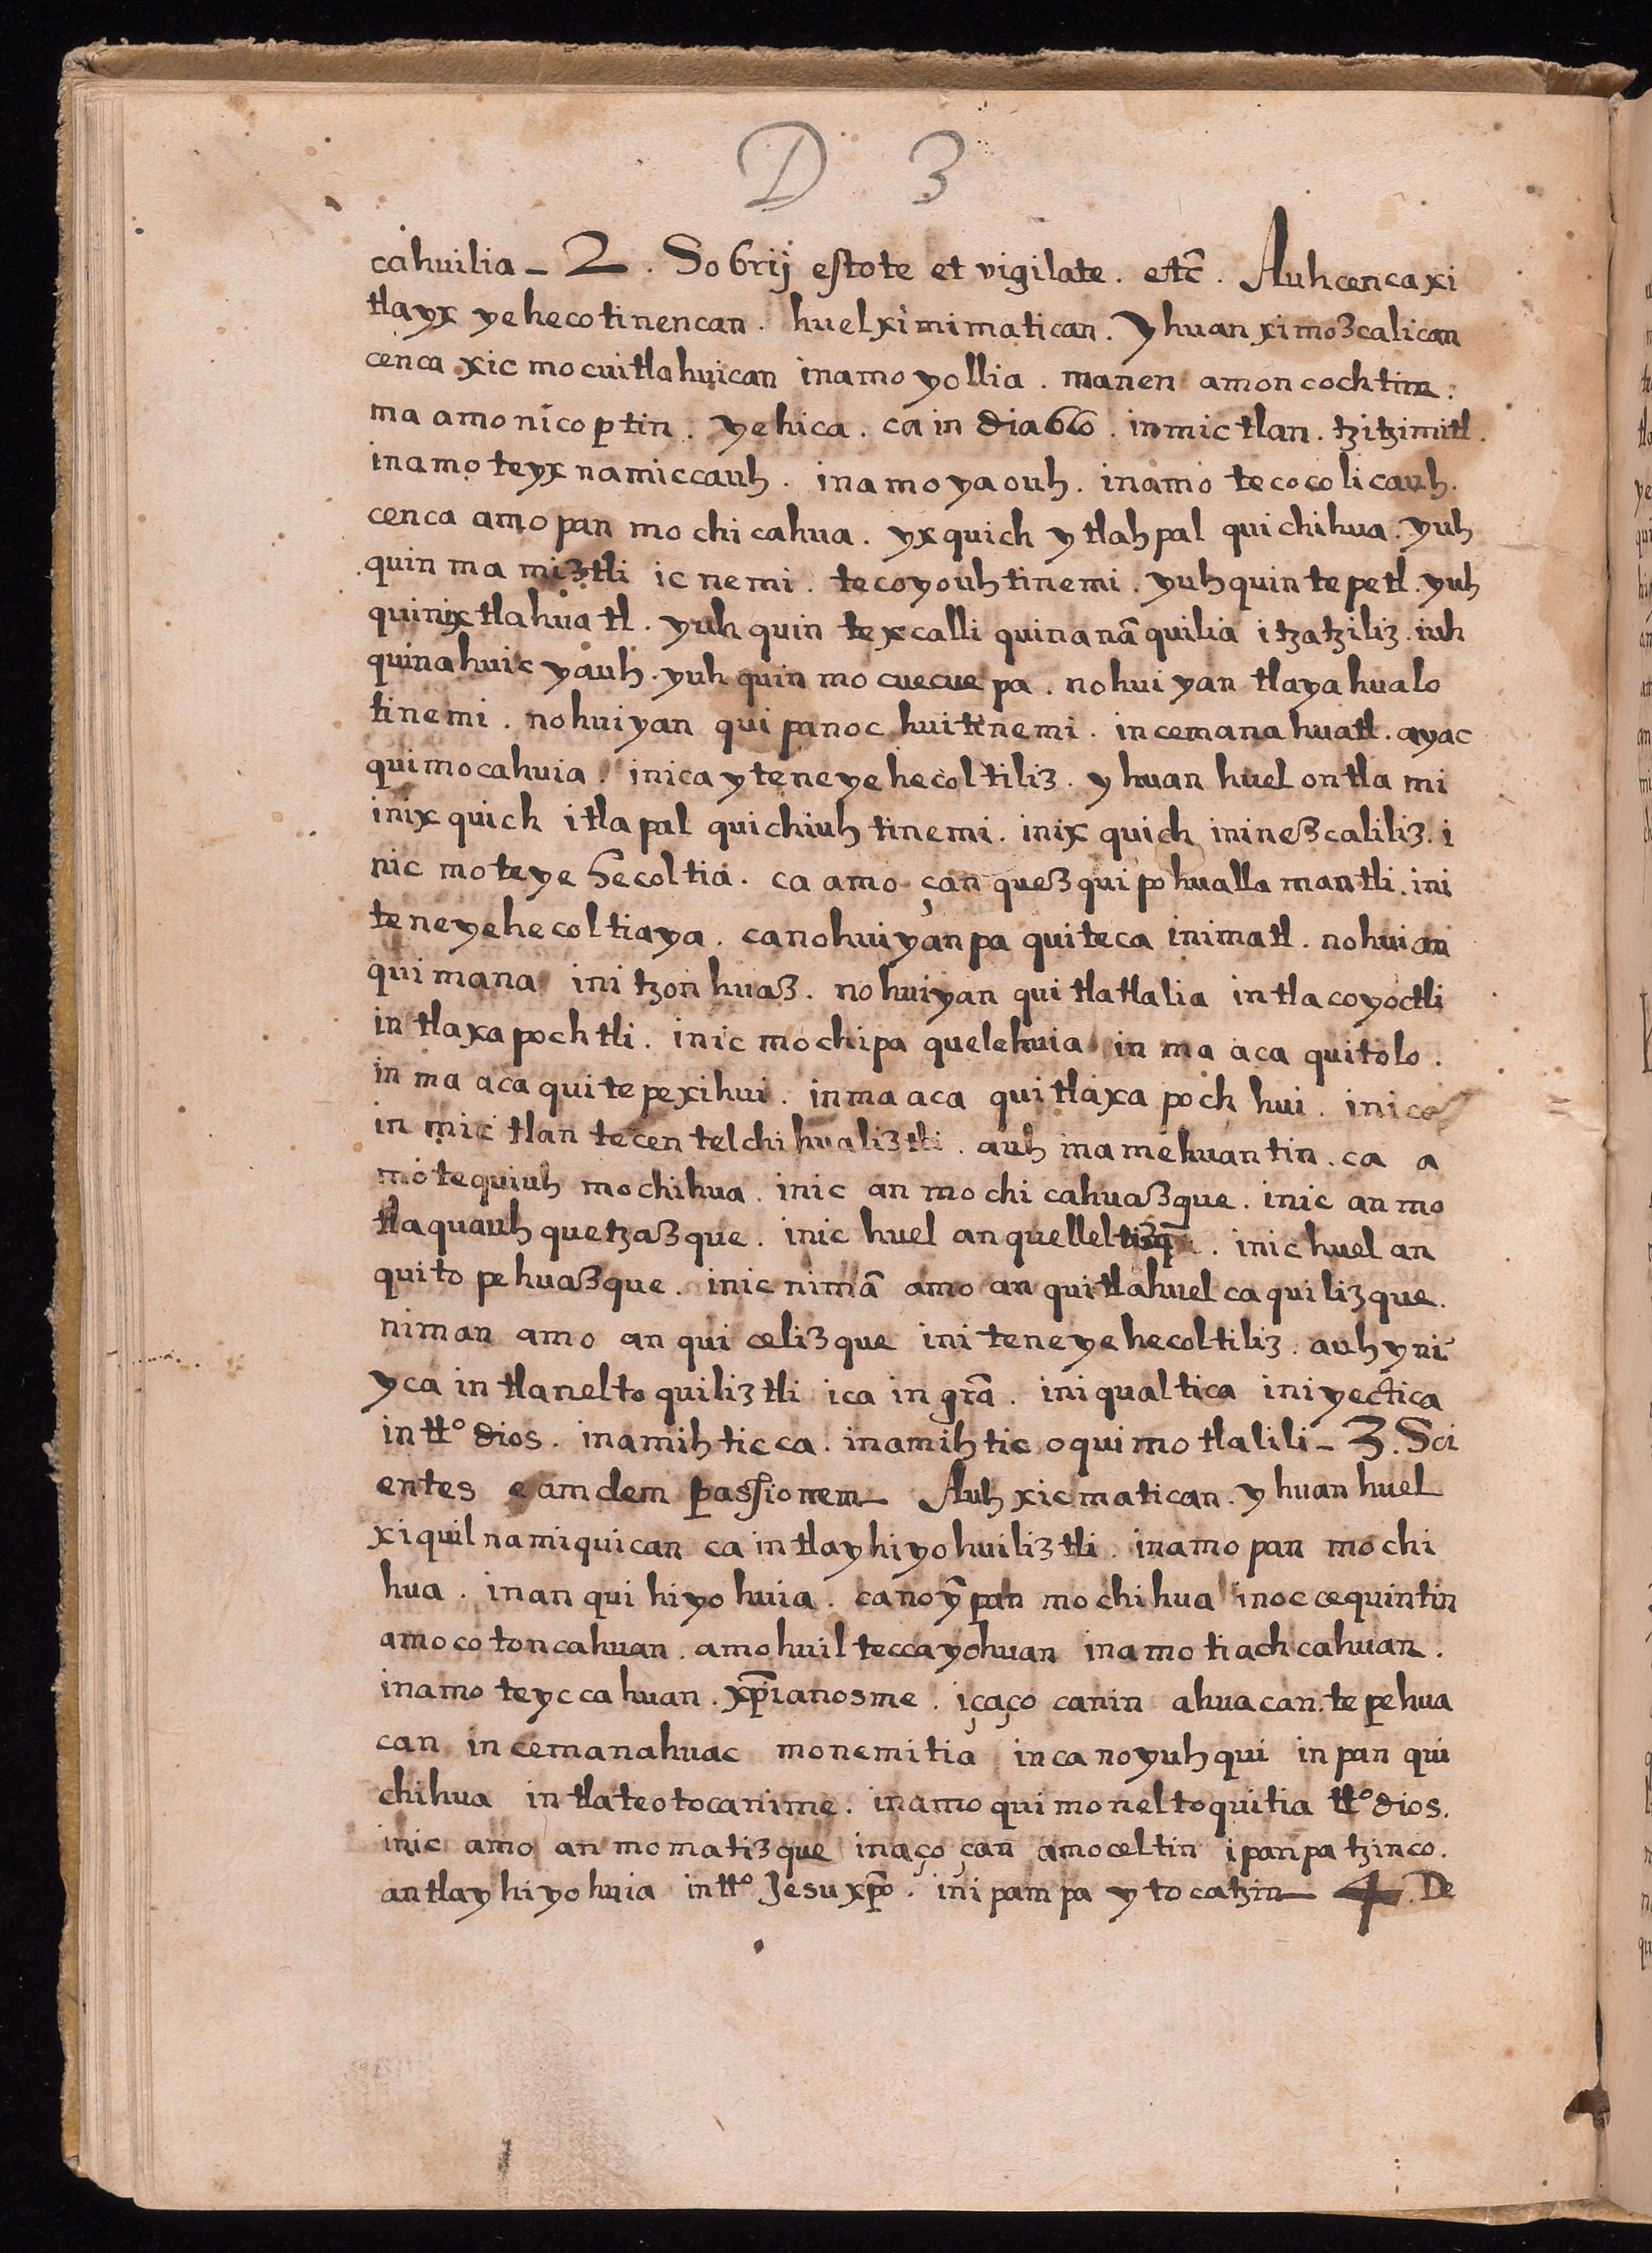 D 3
cahuilia – 2. Sobrij estote et vigilate. etc̃. Auh cenca xi
tlayx yehecotinencan. huel ximimatican. Yhuan ximozcalican
cenca xic mocuitlahuican inamoyollia. manen amoncochtin.
ma amonicoptin. yehica. ca in diablo. inmictlan. tzitzimitl.
inamo teyxnamiccauh. inamoyaouh. inamo tecocolicauh.
cenca amopan mochicahua. yxquich ytlahpal quichihua. yuh
quin ma miztli ic nemi. tecoyouhtinemi. yuhquin tepetl. yuh
quinixtlahuatl. yuh quin texcalli quinanãquilia itzatziliz. iuh
quinahuic yauh. yuh quin mocuecuepa. nohuiyan tlayahualo
tinemi. nohuiyan quipanoc huitinemi. incemanahuatl. ayac
quimocahuia. inica yteneyehecoltiliz. yhuan huel ontlami
inixquich itlapal quichiuhtinemi. inixquich ininezcaliliz. i
nic moteyehecoltia. ca amo çan quezquipohuallamantli. ini
teneyehecoltiaya. canohuiyanpa quiteca inimatl. nohuian
quimana initzonhuaz. nohuiyan quitlatlalia intlacoyoctli
in tlaxapochtli. inic mochipa quelehuia in ma aca quitolo.
in ma aca quitepexihui. inma aca quitlaxapochhui. inica
in mictlan tecentelchihualiztli. auh inamehuantin. ca a
motequiuh mochihua. inic anmochicahuazque. inic anmo
tlaquauhquetzazque. inic huel anquelleltizq̃. inic huel an
quitopehuazque. inic nimã amo anquitlahuelcaquilizque.
niman amo anquicelizque initeneyehecoltiliz. auh yni
yca intlaneltoquiliztli ica in grã. iniqualtica iniyectica
intt͞o dios. inamihticca. inamihtic oquimotlalili – 3. Sci
entes eamdem passionem – Auh xicmatican. yhuan huel
xiquilnamiquican ca intlayhiyohuiliztli. inamopan mochi
hua. inanquihiyohuia. canoỹpan mochihua inoccequintin
amocotoncahuan. amohuilteccayohuan inamotiachcahuan.
inamoteyccahuan. xp̃ianosme. içaço canin ahuacan. tepehua
can incemanahuac monemitia incanoyuhqui inpan qui
chihua intlateotocanime. inamo quimoneltoquitia tt͞o dios.
inic amo anmomatizque inaço çan amoceltin ipanpatzinco.
antlayhiyohuia intt͞o Jesu xp̃o. inipampa ytocatzin – 4. De